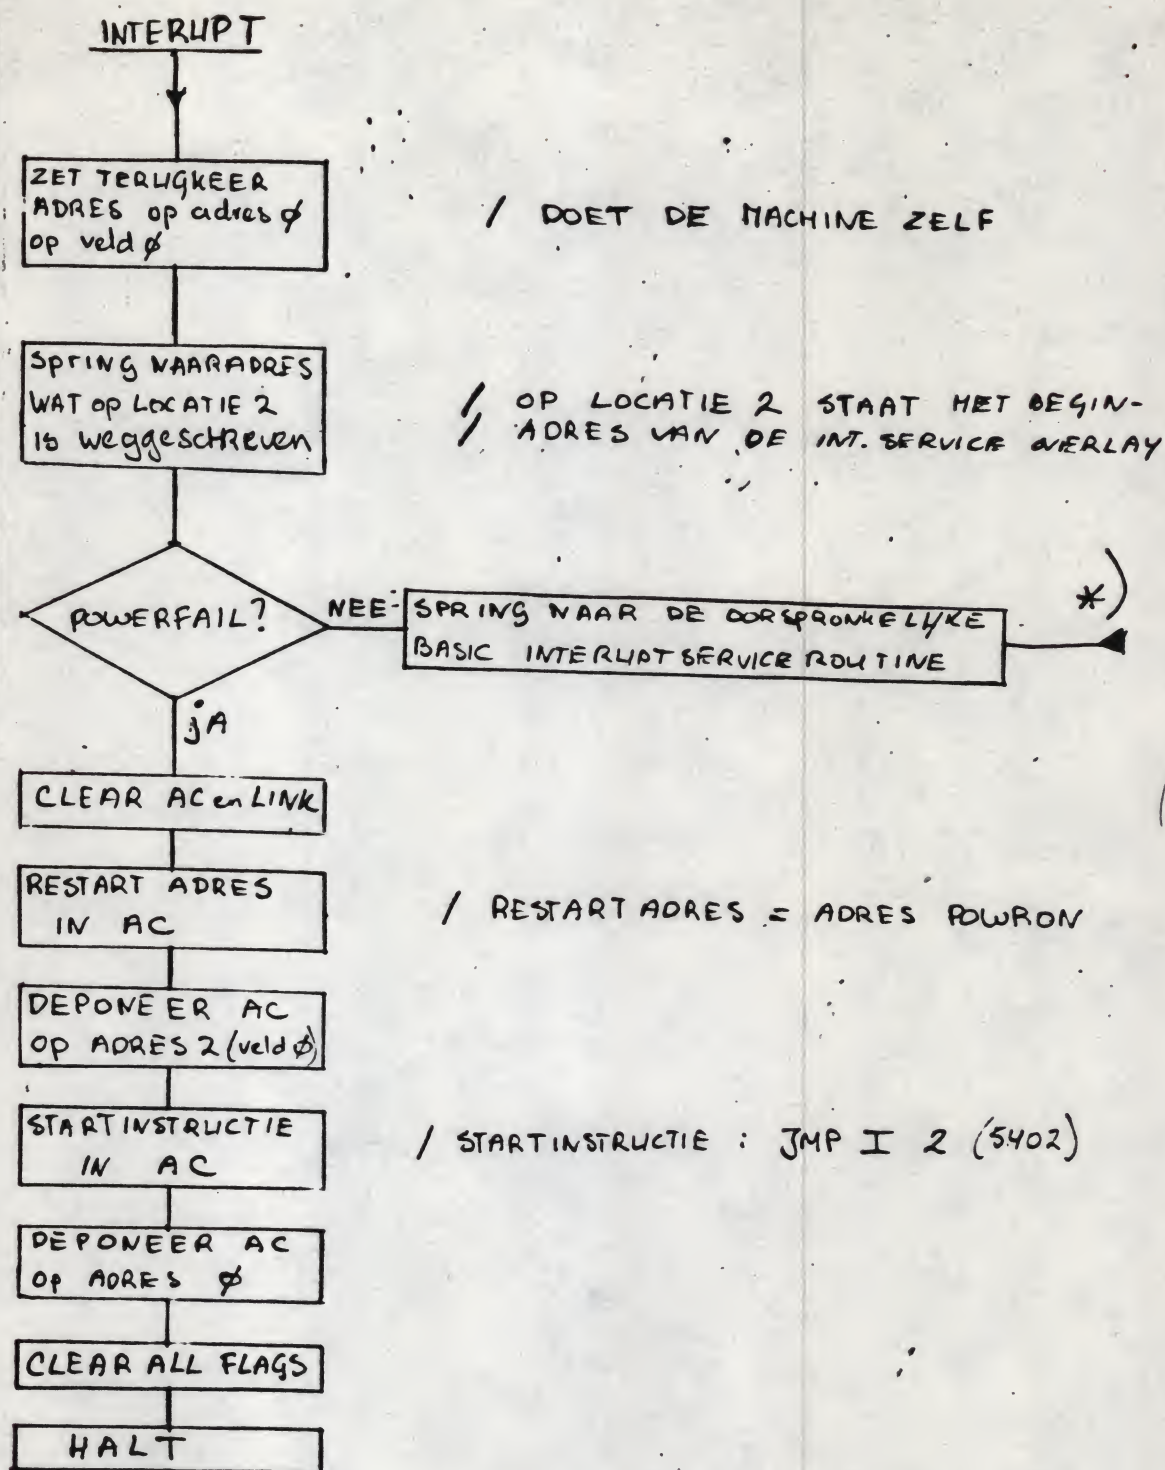 INTERUPT
ZET TERUGKEER
ADRES op adres ø
op veld ø
/ DOET DE MACHINE ZELF
Spring NAARADRES
WAT op LOCATIE 2
is weggeschreven
/ OP LOCATIE 2 STAAT HET BEGIN-
/ ADRES VAN DE INT. SERVICE OVERLAY
POWERFAIL?
NEE
SPRING NAAR DE OORSPRONKELIJKE
BASIC INTERUPT SERVICE ROUTINE
*)
jA
CLEAR AC en LINK
RESTART ADRES
IN AC
/ RESTART ADRES = ADRES POWRON
DEPONEER AC
OP ADRES 2 (veld ø)
STARTINSTRUCTIE
IN AC
/ STARTINSTRUCTIE : JMP I 2 (5402)
DEPONEER AC
Op ADRES ø
CLEAR ALL FLAGS
HALT